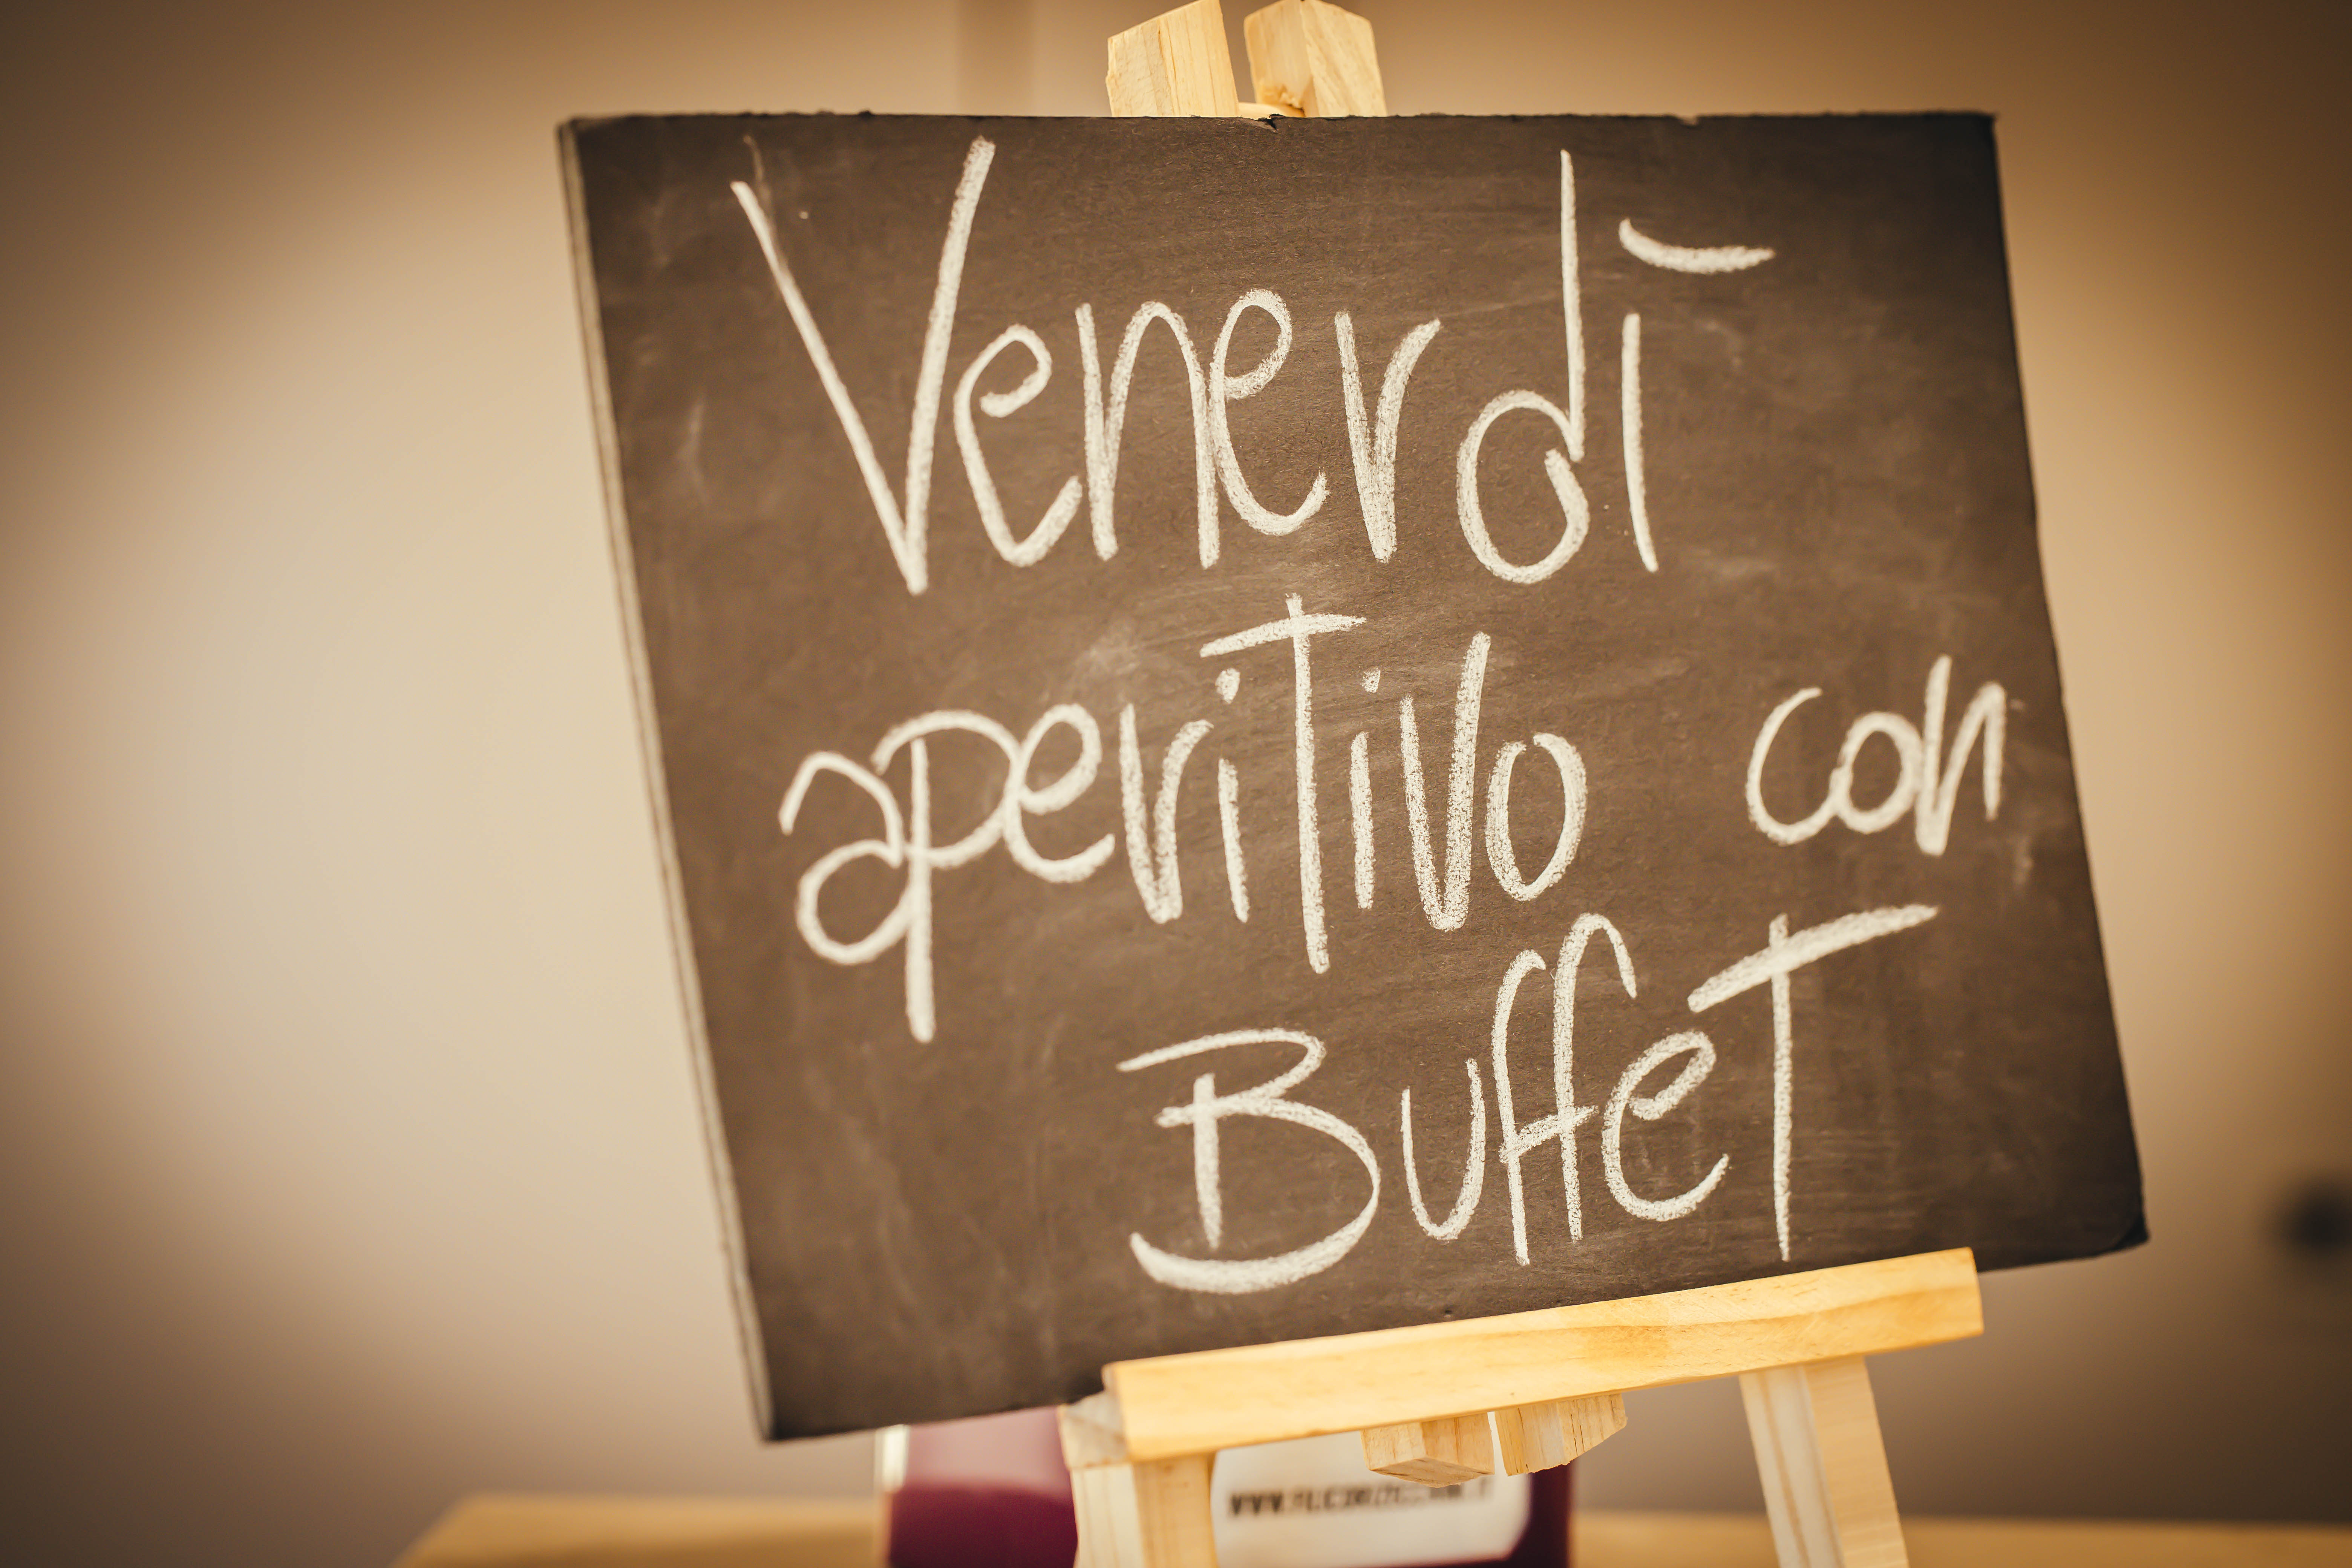 Venerdì
aperitivo con
Buffet